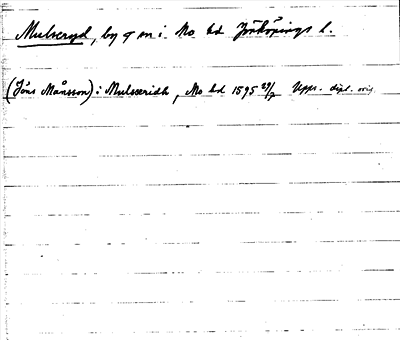 Mulseryd, by o sn i Mo hd Jönköpings l.
(Jöns Månsson) i Mulseridh, Mo hd 1595 29/7 Upps. dipl. orig.